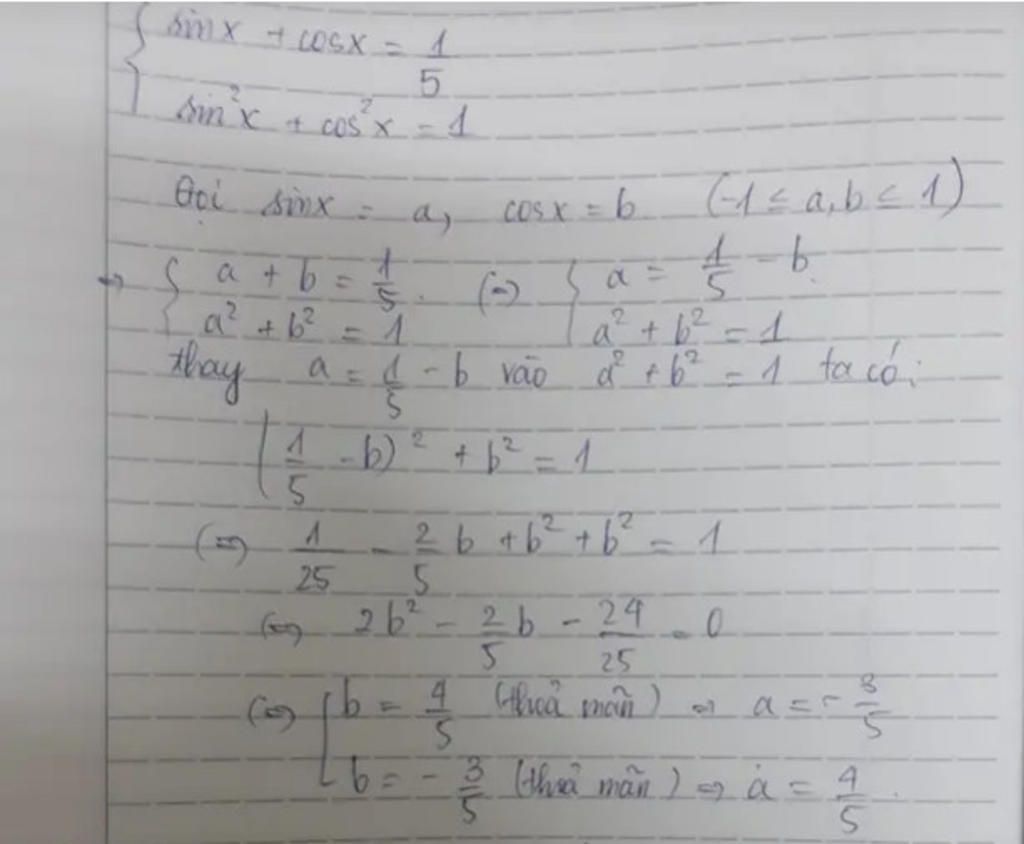 { sinx + cosx = 1/5
sin²x + cos²x = 1
Gọi sinx = a, cosx = b (-1 ≤ a, b ≤ 1)
⇒ { a + b = 1/5. (=) { a = 1/5 - b.
a² + b² = 1 a² + b² = 1
thay a = 1/5 - b vào a² + b² = 1 ta có:
(1/5 - b)² + b² = 1
(=) 1/25 - 2/5 b + b² + b² = 1
(=) 2b² - 2/5 b - 24/25 = 0
(=) [ b = 4/5 (thoả mãn) ⇒ a = - 3/5
b = - 3/5 (thoả mãn) ⇒ a = 4/5.